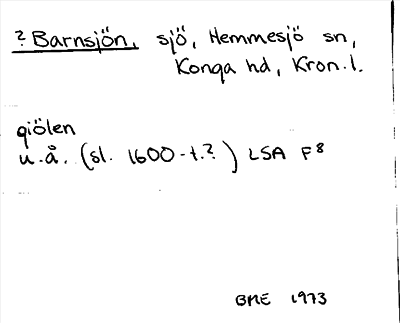 ? Barnsjön, sjö, Hemmesjö sn,
Konga hd, Kron.l.
giölen
u.å. (sl. 1600-t.?) LSA F8
BME 1973